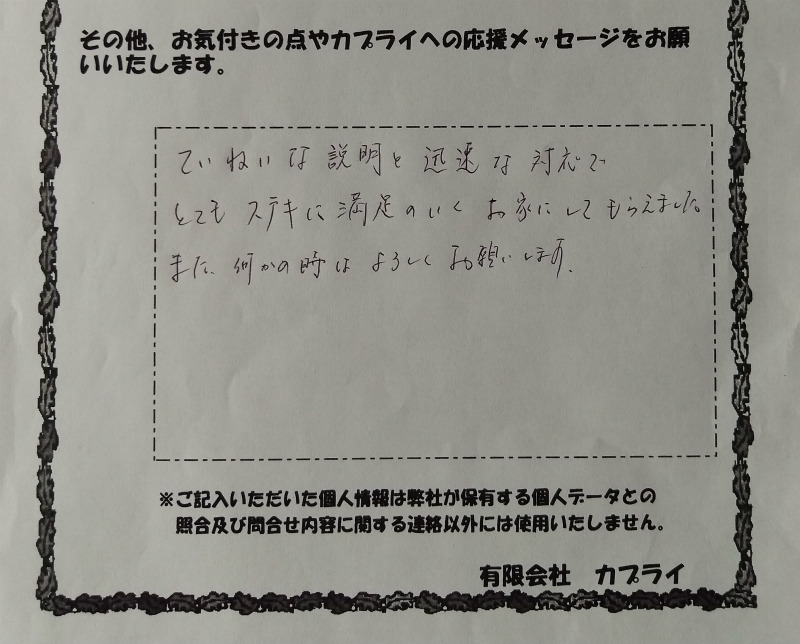 その他、お気付きの点やカプライへの応援メッセージをお願
いいたします。
ていねいな説明と迅速な対応で
とてもステキに満足のいくお家にしてもらえました。
また、何かの時はよろしくお願いします。
※ご記入いただいた個人情報は弊社が保有する個人データとの
照合及び問合せ内容に関する連絡以外には使用いたしません。
有限会社 カプライ